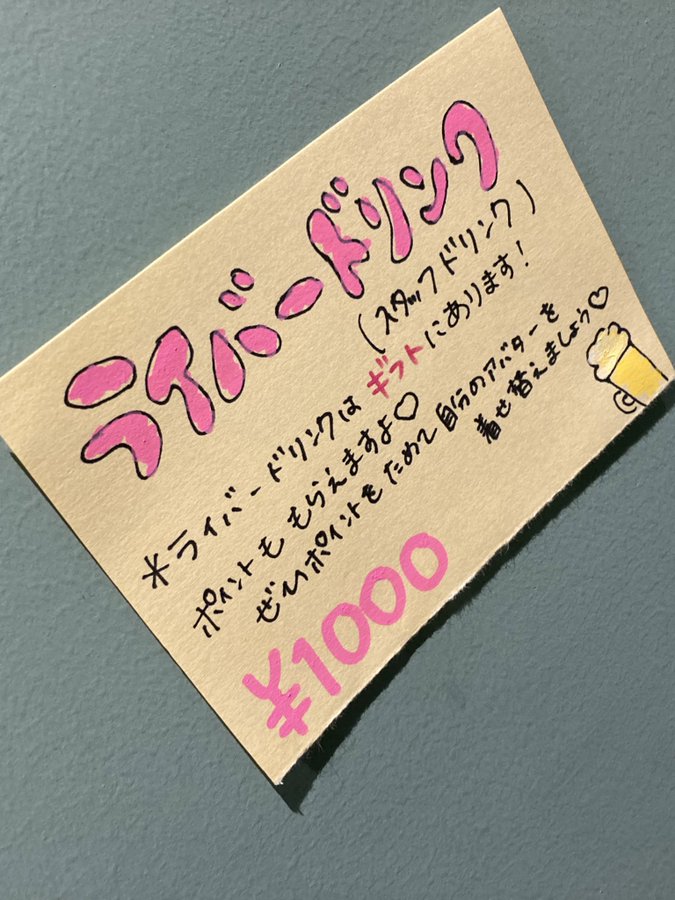 ライバードリンク
(スタッフドリンク)
*ライバードリンクはギフトにあります!
ポイントももらえますよ♡
ぜひポイントをためて自分のアバターを
着せ替えましょう♡
¥1000